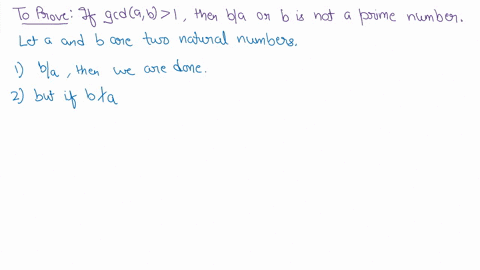 To Prove: If gcd(a,b)>1, then b/a or b is not a prime number.
Let a and b are two natural numbers.
1) b/a, then we are done.
2) but if b∤a